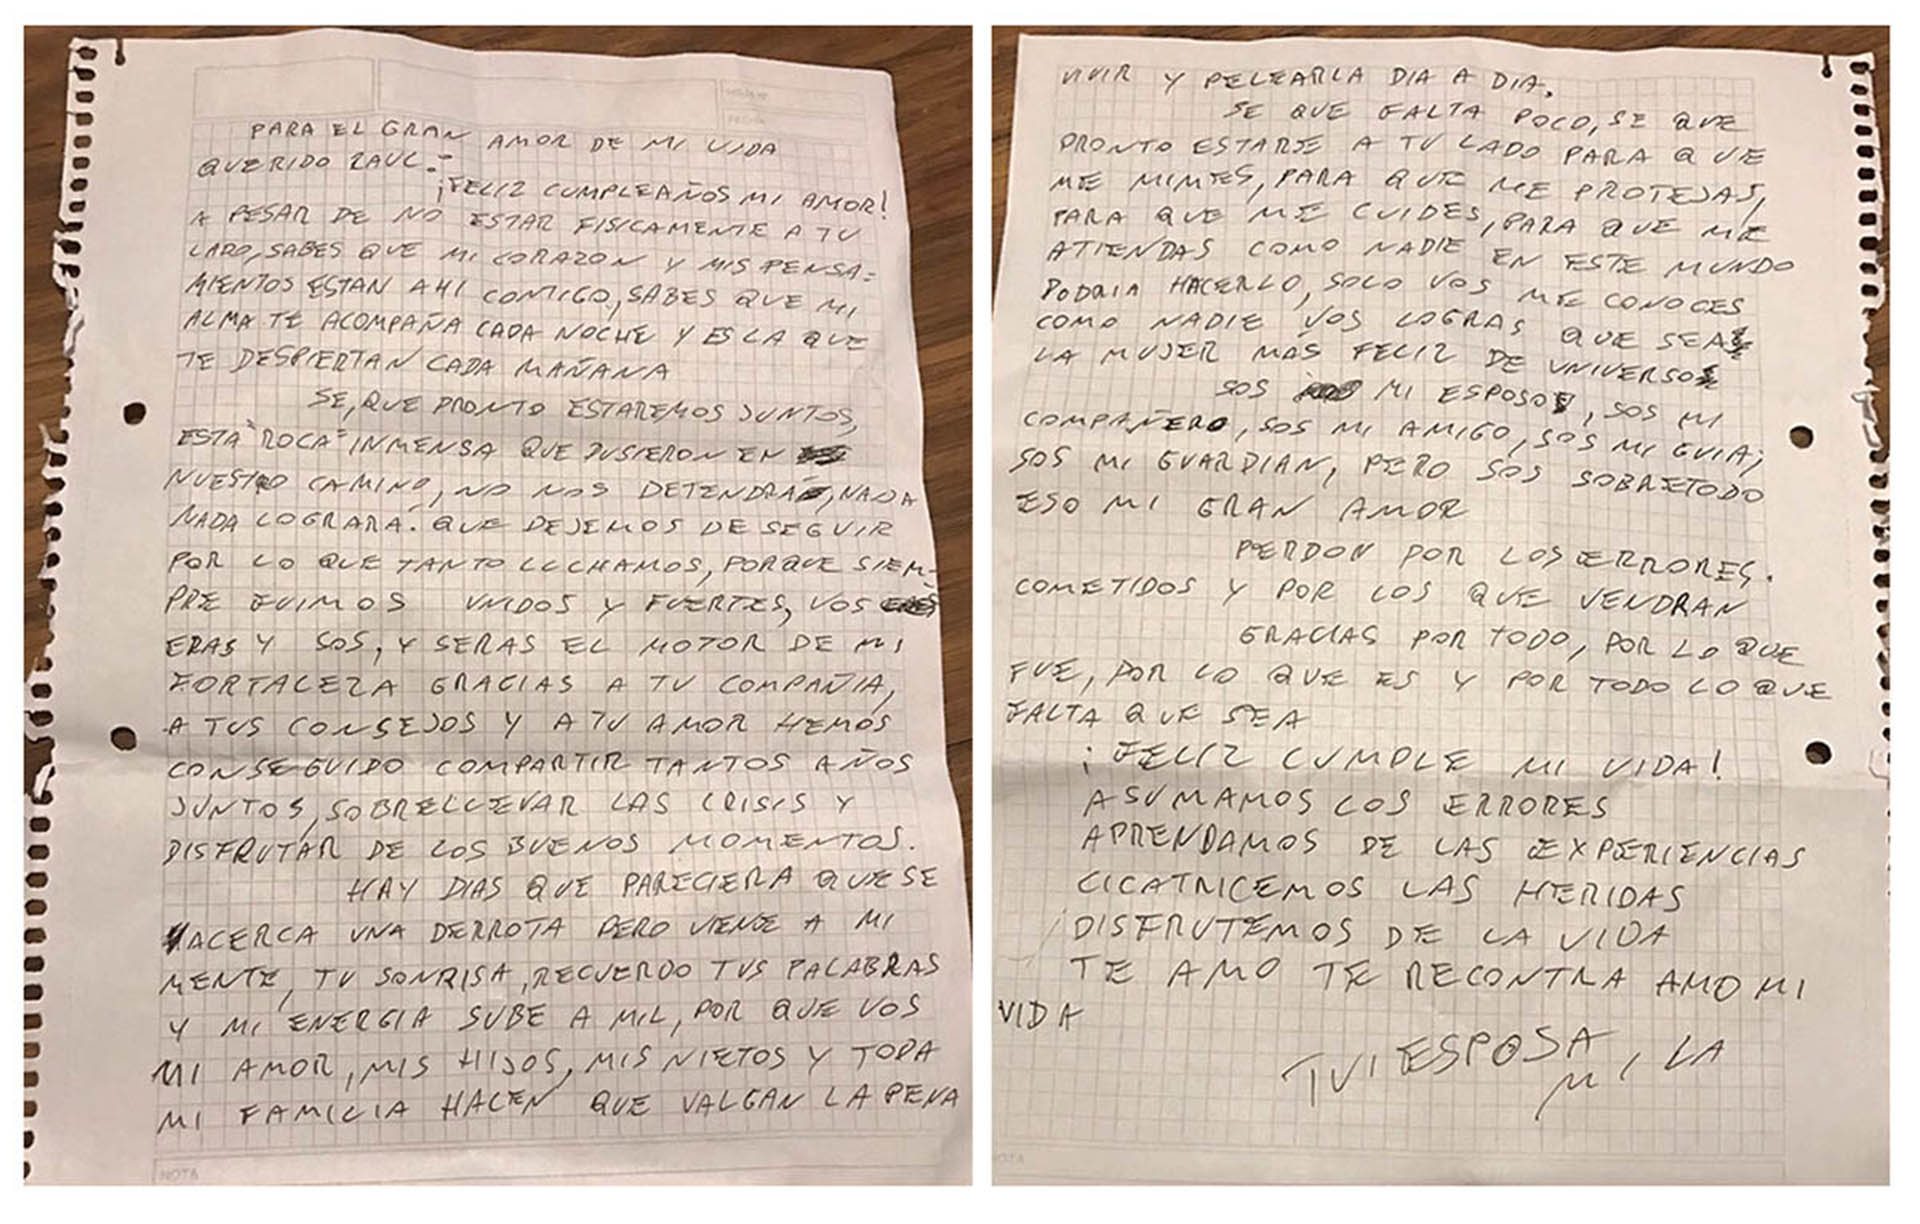 PARA EL GRAN AMOR DE MI VIDA
QUERIDO RAUL -
¡FELIZ CUMPLEAÑOS MI AMOR!
A PESAR DE NO ESTAR FISICAMENTE A TU
LADO, SABES QUE MI CORAZON Y MIS PENSA=
MIENTOS ESTAN AHI CONTIGO, SABES QUE MI
ALMA TE ACOMPAÑA CADA NOCHE Y ES LA QUE
TE DESPIERTAN CADA MAÑANA
SE, QUE PRONTO ESTAREMOS JUNTOS,
ESTA "ROCA" INMENSA QUE PUSIERON EN
NUESTRO CAMINO, NO NOS DETENDRÁ, NADA
NADA LOGRARA. QUE DEJEMOS DE SEGUIR
POR LO QUE TANTO LUCHAMOS, PORQUE SIEM-
PRE FUIMOS UNIDOS Y FUERTES, VOS
ERAS Y SOS, Y SERAS EL MOTOR DE MI
FORTALEZA GRACIAS A TU COMPAÑIA,
A TUS CONSEJOS Y A TU AMOR HEMOS
CONSEGUIDO COMPARTIR TANTOS AÑOS
JUNTOS, SOBRELLEVAR LAS CRISIS Y
DISFRUTAR DE LOS BUENOS MOMENTOS.
HAY DIAS QUE PARECIERA QUE SE
ACERCA UNA DERROTA PERO VIENE A MI
MENTE, TU SONRISA, RECUERDO TUS PALABRAS
Y MI ENERGIA SUBE A MIL, POR QUE VOS
MI AMOR, MIS HIJOS, MIS NIETOS Y TODA
MI FAMILIA HACEN QUE VALGAN LA PENA
NOTA
VIVIR Y PELEARLA DIA A DIA.
SE QUE FALTA POCO, SE QUE
PRONTO ESTARE A TU LADO PARA QUE
ME MIMES, PARA QUE ME PROTEJAS,
PARA QUE ME CUIDES, PARA QUE ME
ATIENDAS COMO NADIE EN ESTE MUNDO
PODRIA HACERLO, SOLO VOS ME CONOCES
COMO NADIE VOS LOGRAS QUE SEA
LA MUJER MAS FELIZ DE UNIVERSO
SOS MI ESPOSO, SOS MI
COMPAÑERO, SOS MI AMIGO, SOS MI GUIA,
SOS MI GUARDIAN, PERO SOS SOBRETODO
ESO MI GRAN AMOR
PERDON POR LOS ERRORES.
COMETIDOS Y POR LOS QUE VENDRAN
GRACIAS POR TODO, POR LO QUE
FUE, POR LO QUE ES Y POR TODO LO QUE
FALTA QUE SEA
¡FELIZ CUMPLE MI VIDA!
ASUMAMOS LOS ERRORES
APRENDAMOS DE LAS EXPERIENCIAS
CICATRICEMOS LAS HERIDAS
DISFRUTEMOS DE LA VIDA
TE AMO TE RECONTRA AMO MI
VIDA
ESPOSA, LA